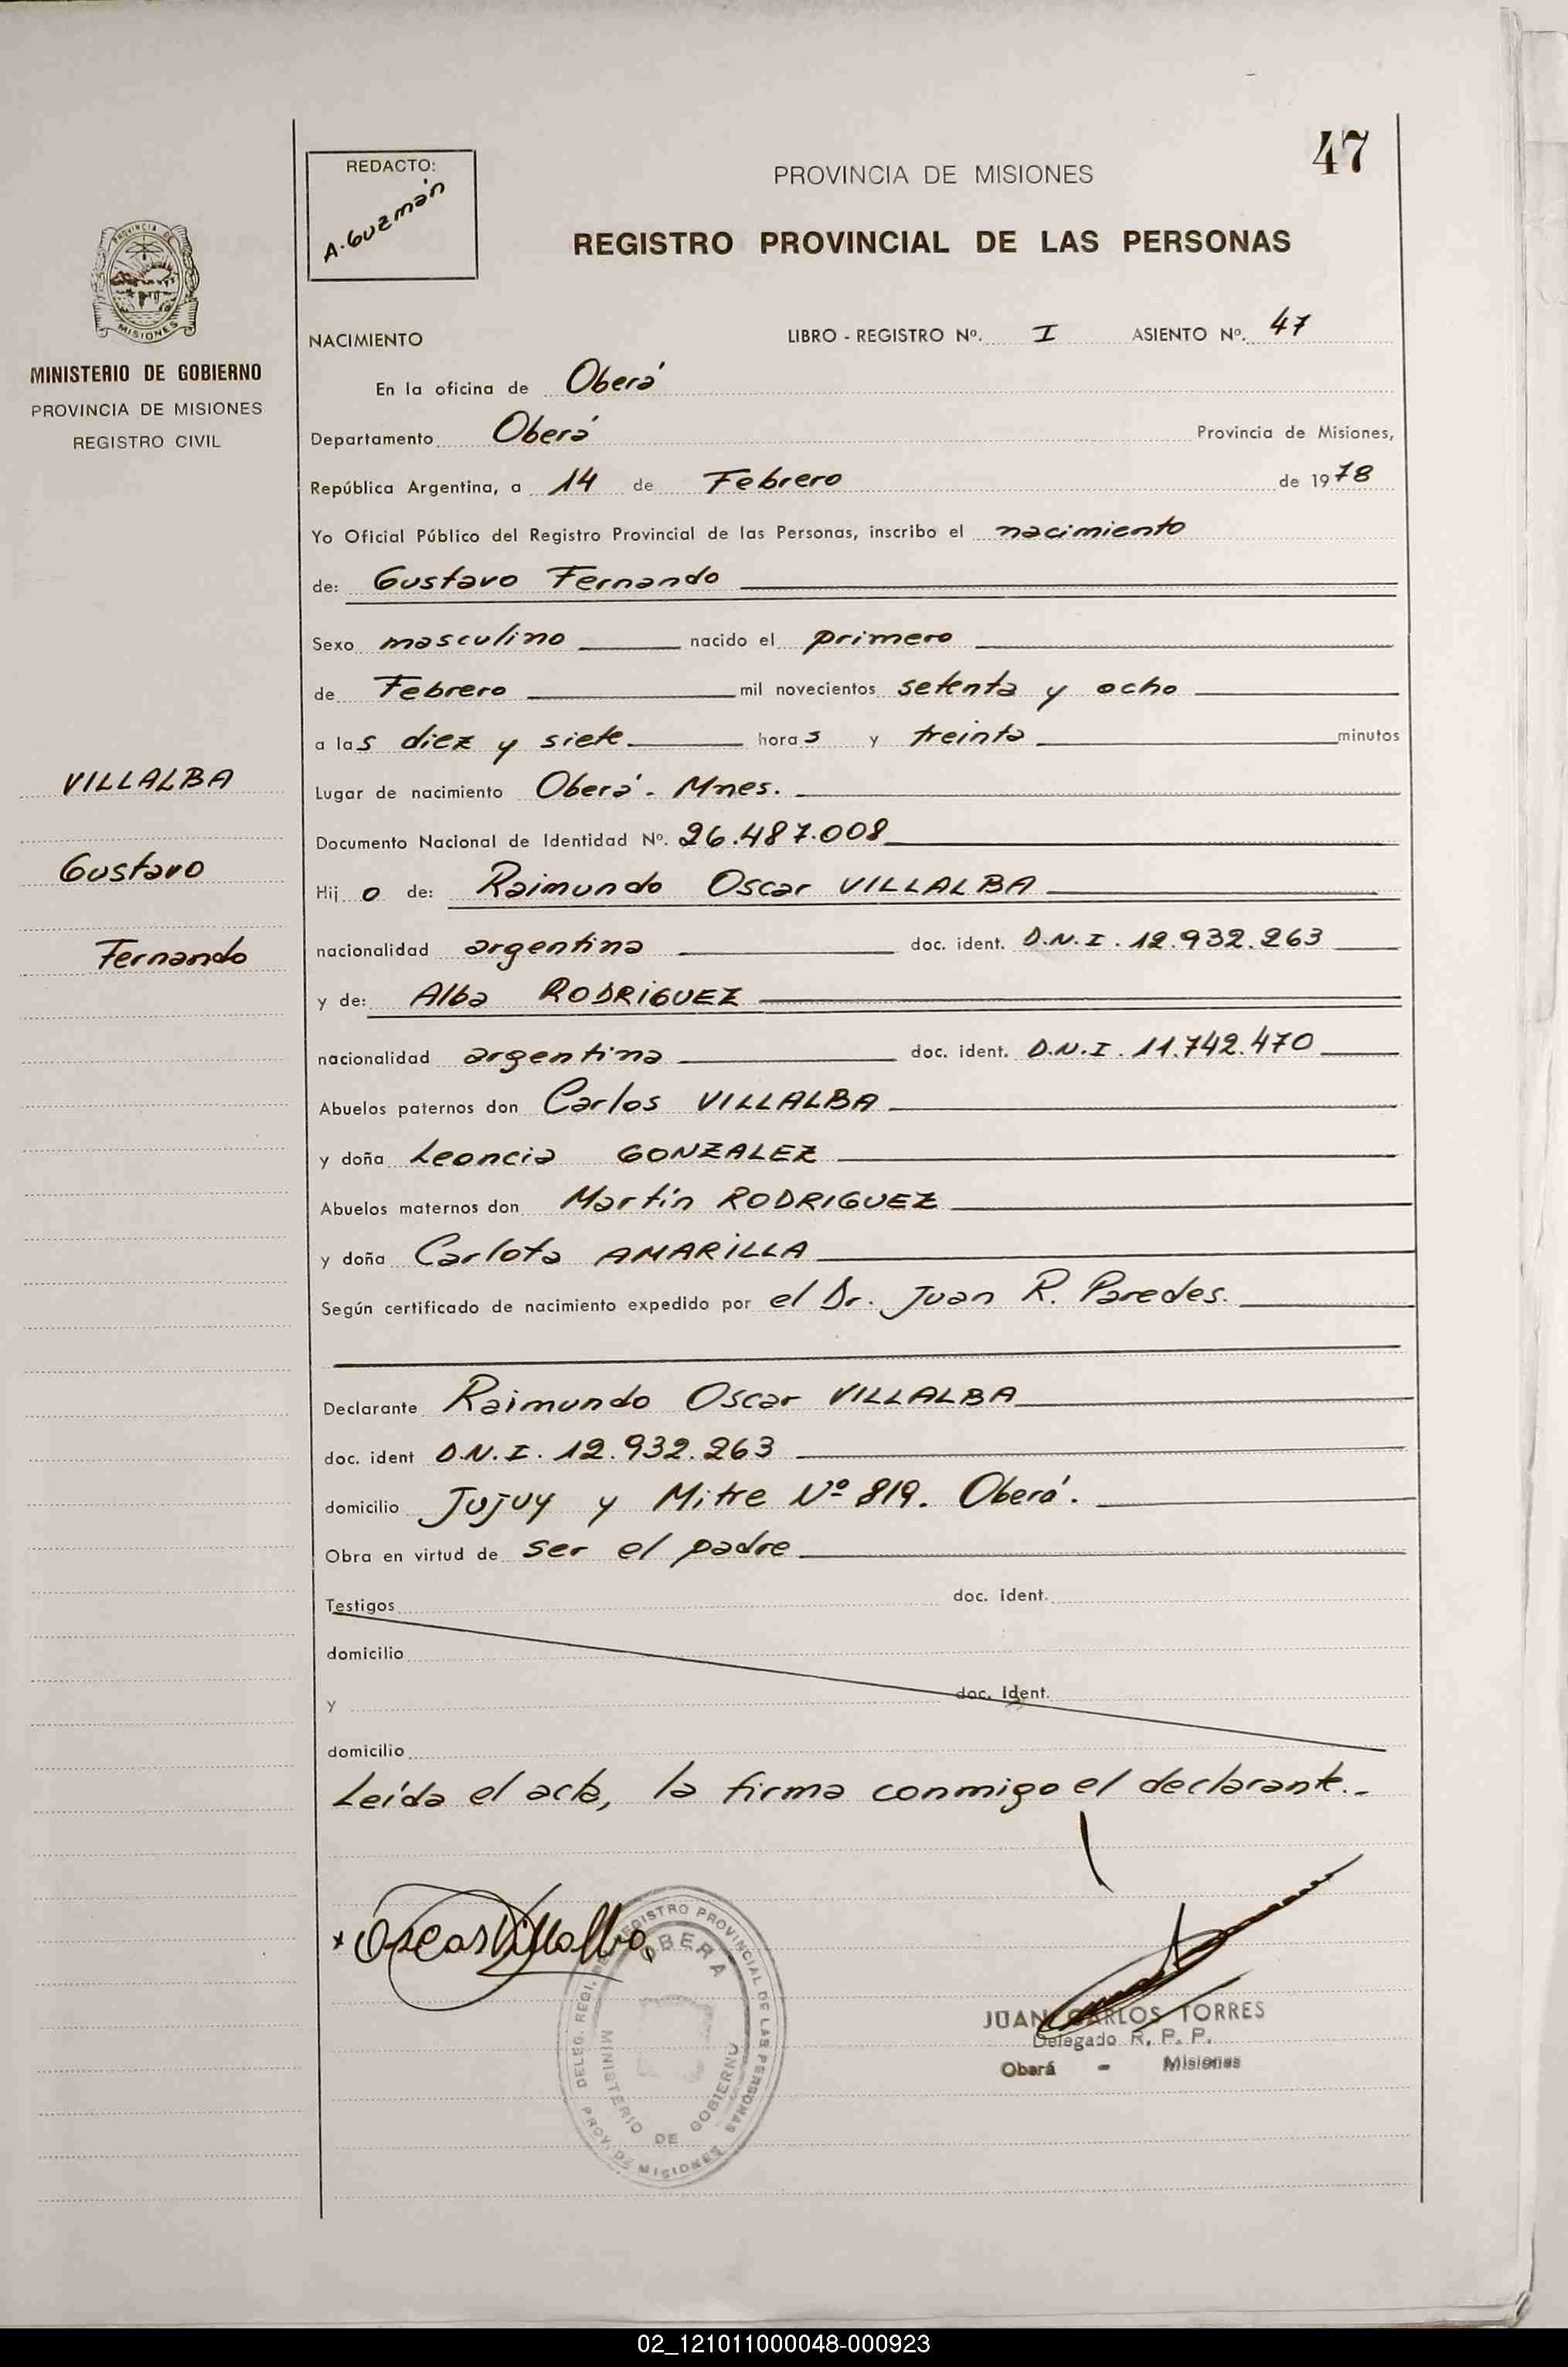 47
REDACTO:
A. Guzmán
PROVINCIA DE MISIONES
REGISTRO PROVINCIAL DE LAS PERSONAS
PROVINCIA DE
MISIONES
MINISTERIO DE GOBIERNO
PROVINCIA DE MISIONES
REGISTRO CIVIL
NACIMIENTO LIBRO - REGISTRO Nº. I ASIENTO Nº. 47
En la oficina de Oberá
Departamento Oberá Provincia de Misiones,
República Argentina, a 14 de Febrero de 1978
Yo Oficial Público del Registro Provincial de las Personas, inscribo el nacimiento
de: Gustavo Fernando
Sexo masculino nacido el primero
de Febrero mil novecientos setenta y ocho
a las diez y siete horas y treinta minutos
VILLALBA
Gustavo
Fernando
Lugar de nacimiento Oberá - Mnes.
Documento Nacional de Identidad Nº. 26.487.008
Hijo de: Raimundo Oscar VILLALBA
nacionalidad argentina doc. ident. D.N.I. 12.932.263
y de: Alba RODRIGUEZ
nacionalidad argentina doc. ident. D.N.I. 11.742.470
Abuelos paternos don Carlos VILLALBA
y doña Leoncia GONZALEZ
Abuelos maternos don Martín RODRIGUEZ
y doña Carlota AMARILLA
Según certificado de nacimiento expedido por el Dr. Juan R. Paredes.
Declarante Raimundo Oscar VILLALBA
doc. ident D.N.I. 12.932.263
domicilio Jujuy y Mitre Nº 819. Oberá.
Obra en virtud de ser el padre
Testigos doc. ident.
domicilio
y doc. ident.
domicilio
Leída el acta, la firma conmigo el declarante.-
x Oscar Villalba
REGISTRO PROVINCIAL DE LAS PERSONAS
OBERA
MINISTERIO DE GOBIERNO
PROV. DE MISIONES
JUAN CARLOS TORRES
Delegado R. P. P.
Oberá - Misiones
02_121011000048-000923